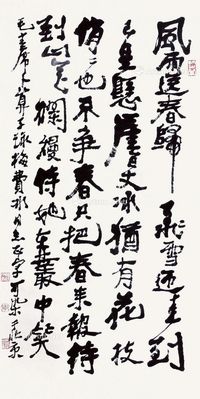 風雨送春歸飛雪迎春到
已是懸崖百丈冰猶有花枝
俏々也不爭春只把春來報待
到山花爛熳時她在叢中笑
毛主席卜算子詠梅